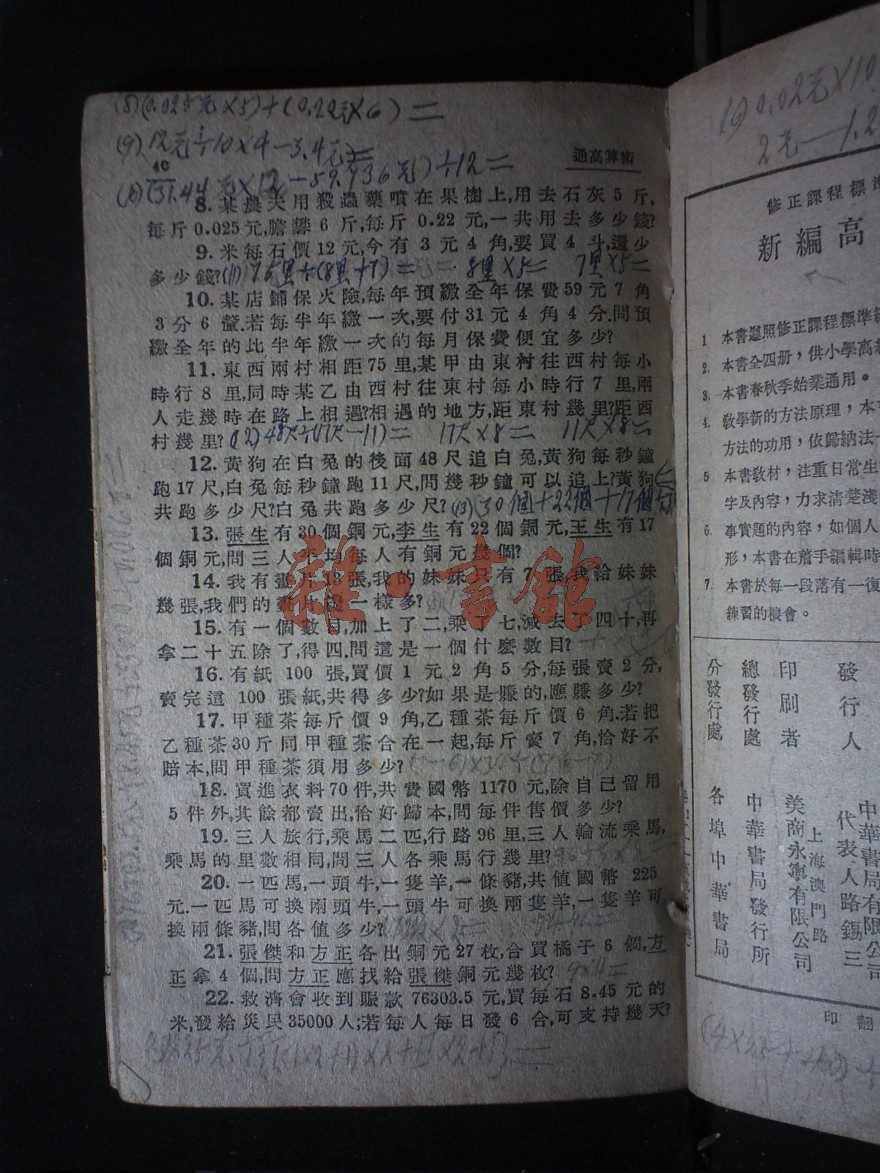 (8)(0.025元×5)+(0.22元×6)=
(9) 12元÷10×4-3.4元=
通高算術
8. 某農夫用殺蟲藥噴在果樹上,用去石灰5斤,
每斤0.025元,膽礬6斤,每斤0.22元,一共用去多少錢?
9. 米每石價12元,今有3元4角,要買4斗,還少
多少錢?
(11) 75里÷(8里+7)= 8里×5= 7里×5=
10. 某店鋪保火險,每年預繳全年保費59元7角
3分6釐.若每半年繳一次,要付31元4角4分.問預
繳全年的比半年繳一次的每月保費便宜多少?
11. 東西兩村相距75里,某甲由東村往西村每小
時行8里,同時某乙由西村往東村每小時行7里,兩
人走幾時在路上相遇?相遇的地方,距東村幾里?距西
村幾里?
(12) 48尺÷(17尺-11)= 17尺×8= 11尺×8=
12. 黃狗在白兔的後面48尺追白兔,黃狗每秒鐘
跑17尺,白兔每秒鐘跑11尺,問幾秒鐘可以追上?黃狗
共跑多少尺?白兔共跑多少尺?
13. 張生有30個銅元,李生有22個銅元,王生有17
個銅元,問三人平均每人有銅元幾個?
14. 我有畫片13張,我的妹妹只有7張,我給妹妹
幾張,我們的畫片便一樣多?
15. 有一個數目,加上了二,乘了七,減去了四十,再
拿二十五除了,得四.問這是一個什麼數目?
16. 有紙100張,買價1元2角5分,每張賣2分,
賣完這100張紙,共得多少?如果是賺的,應賺多少?
17. 甲種茶每斤價9角,乙種茶每斤價6角.若把
乙種茶30斤同甲種茶合在一起,每斤賣7角,恰好不
賠本,問甲種茶須用多少?
18. 買進衣料70件,共費國幣1170元,除自己留用
5件外,其餘都賣出,恰好歸本,問每件售價多少?
19. 三人旅行,乘馬二匹,行路96里,三人輪流乘馬,
乘馬的里數相同,問三人各乘馬行幾里?
20. 一匹馬,一頭牛,一隻羊,一條豬,共值國幣225
元.一匹馬可換兩頭牛,一頭牛可換兩隻羊,一隻羊可
換兩條豬,問各值多少?
21. 張傑和方正各出銅元27枚,合買橘子6個,方
正拿4個,問方正應找給張傑銅元幾枚?
22. 救濟會收到賑款76303.5元,買每石8.45元的
米,發給災民35000人;若每人每日發6合,可支持幾天?
雜·書館
修正課程標準
新編高
1 本書遵照修正課程標準
2. 本書全四冊,供小學高
3. 本書春秋季始業通用。
4. 教學新的方法原理,本
方法的功用,依歸納法
5 本書教材,注重日常生
字及內容,力求清楚淺
6. 事實題的內容,如個人
形,本書在着手編輯時
7. 本書於每一段落有一復
練習的機會。
發行人
中華書局有限公司
代表人路錫三
印刷者
上海澳門路
美商永寧有限公司
總發行處
中華書局發行所
分發行處
各埠中華書局
印翻